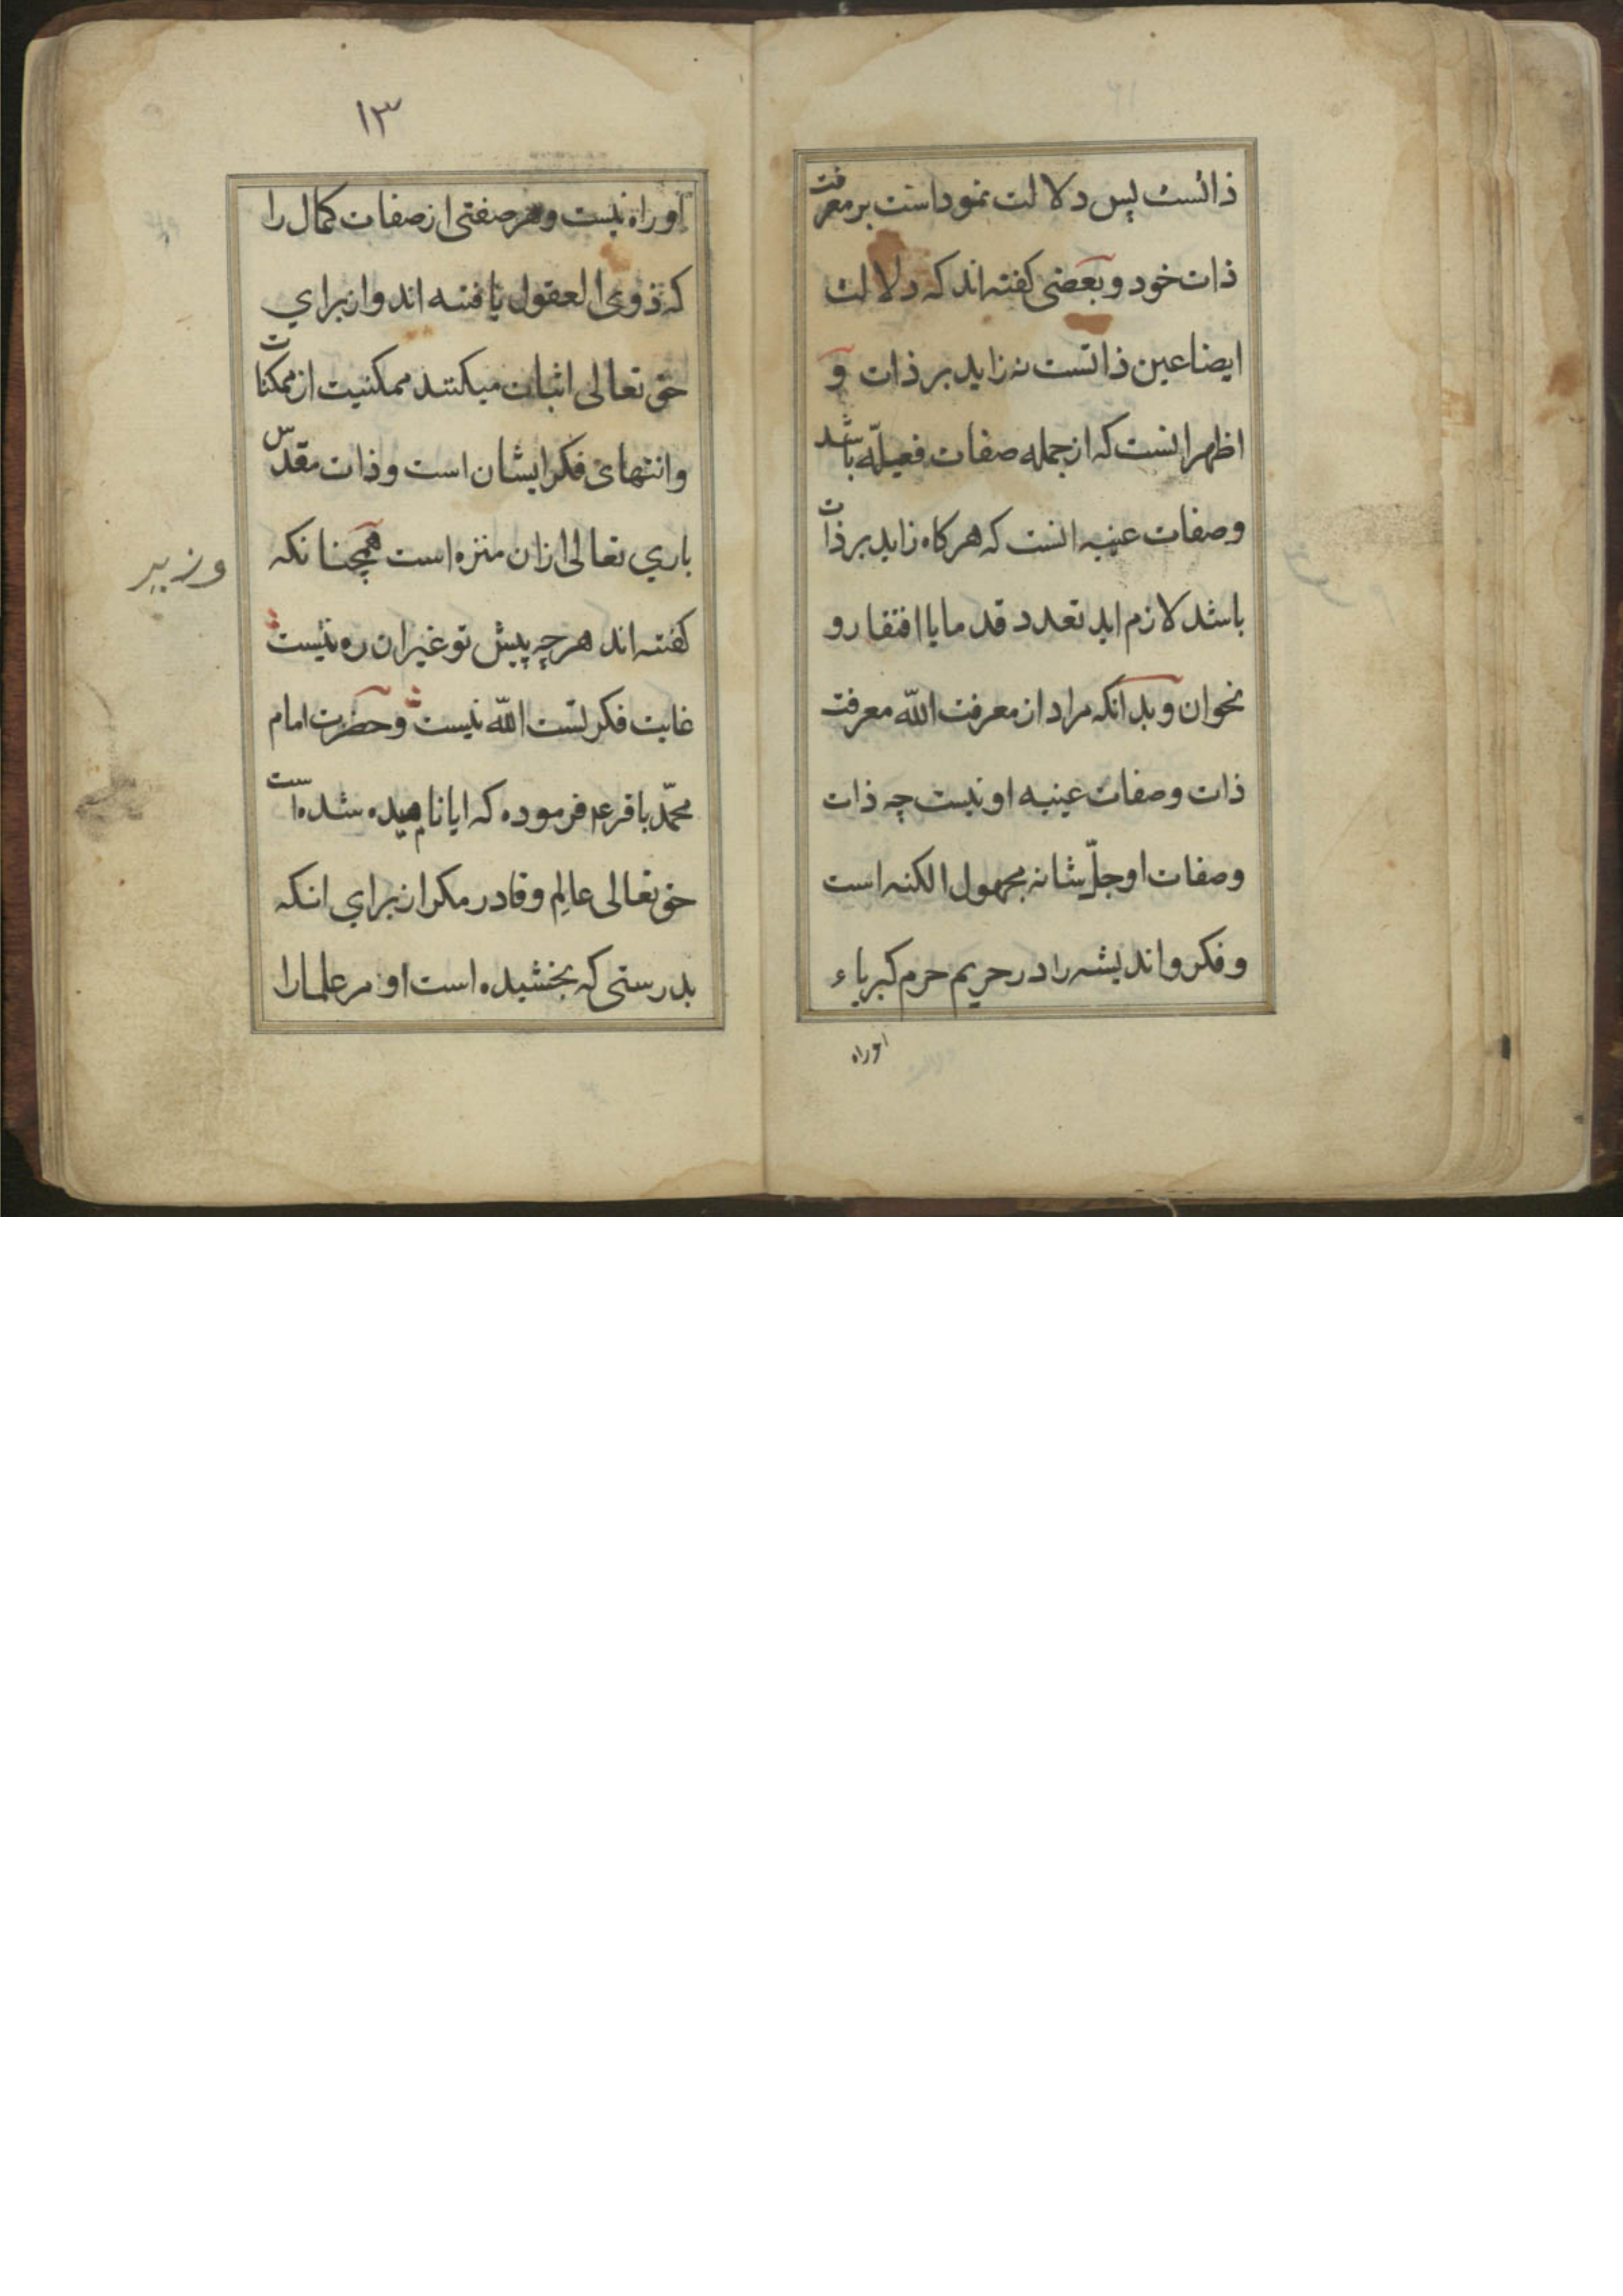 ذاتست پس دلالت نموداست بر معرفت
ذات خود و بعضی کفته‌اند که دلالت
ایضا عین ذاتست نه زاید بر ذات و
اظهر انست که از جمله صفات فعیلّه باشد
وصفات عینیه انست که هرکاه زاید بر ذات
باشد لازم اید تعدد قدما یا افتقار و
نحوان و بدانکه مراد از معرفت اللّه معرفت
ذات وصفات عینیه او نیست چه ذات
وصفات او جلّ شانه مجهول الکنه است
و فکر و اندیشه را در حریم حرم کبریاء
اوراه
۱۳
اوراه نیست و هر صفتی از صفات کمال را
که ذوی العقول یافته اند و از برای
حق تعالی اثبات میکنند ممکنیت از ممکنات
وانتهای فکر ایشان است و ذات مقدس
باری تعالی ازان منزه است همچنانکه
کفته‌اند هرچه پیش تو غیر ان ره نیست
غایت فکر تست اللّه نیست و حضرت امام
محمّد باقر ع فرموده که ایا نامیده شده است
حق تعالی عالِم و قادر مکر از برای انکه
بدرستی که بخشیده است او مر علما را
وزیر